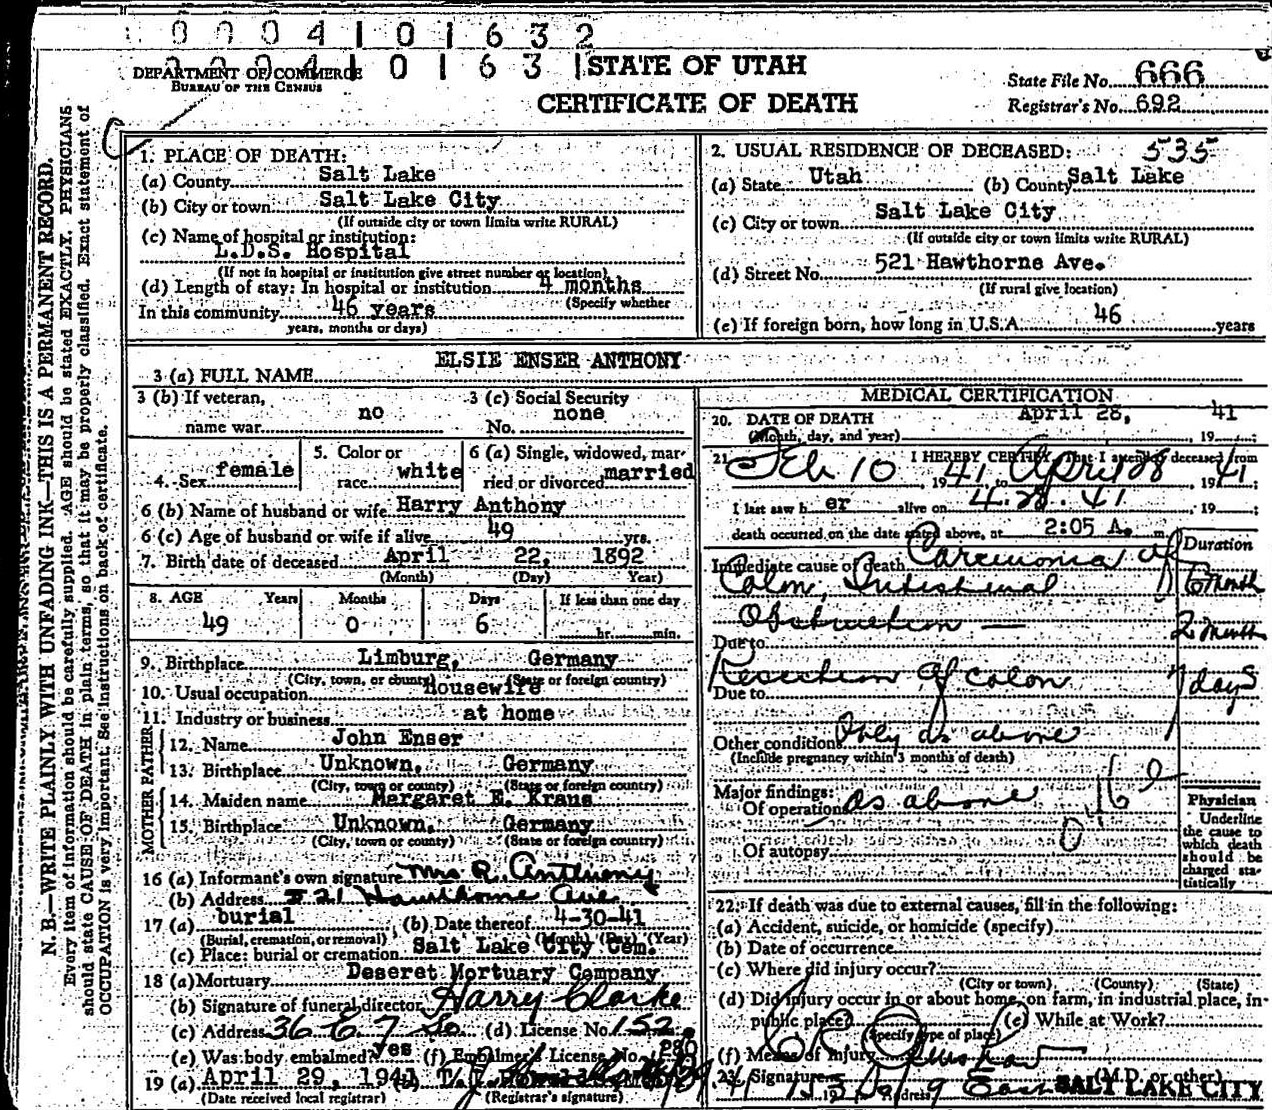 0 0 0 4 1 0 1 6 3 2
0 0 0 4 1 0 1 6 3 1
DEPARTMENT OF COMMERCE
BUREAU OF THE CENSUS
STATE OF UTAH
CERTIFICATE OF DEATH
State File No. 666
Registrar's No. 692
N. B.—WRITE PLAINLY WITH UNFADING INK—THIS IS A PERMANENT RECORD.
Every item of information should be carefully supplied. AGE should be stated EXACTLY. PHYSICIANS
should state CAUSE OF DEATH in plain terms, so that it may be properly classified. Exact statement of
OCCUPATION is very important. See instructions on back of certificate.
1. PLACE OF DEATH:
(a) County Salt Lake
(b) City or town Salt Lake City
(If outside city or town limits write RURAL)
(c) Name of hospital or institution:
L.D.S. Hospital
(If not in hospital or institution give street number or location)
(d) Length of stay: In hospital or institution 4 months
(Specify whether
In this community 46 years
years, months or days)
2. USUAL RESIDENCE OF DECEASED: 535
(a) State Utah (b) County Salt Lake
(c) City or town Salt Lake City
(If outside city or town limits write RURAL)
(d) Street No. 521 Hawthorne Ave.
(If rural give location)
(e) If foreign born, how long in U.S.A. 46 years
3 (a) FULL NAME ELSIE ENSER ANTHONY
3 (b) If veteran, name war no
3 (c) Social Security No. none
4. Sex female
5. Color or race white
6 (a) Single, widowed, married or divorced married
6 (b) Name of husband or wife Harry Anthony
6 (c) Age of husband or wife if alive 49 yrs.
7. Birth date of deceased April 22, 1892
(Month) (Day) Year)
8. AGE Years Months Days If less than one day
49 0 6 hr. min.
9. Birthplace Limburg, Germany
(City, town, or county) (State or foreign country)
10. Usual occupation housewife
11. Industry or business at home
FATHER
12. Name John Enser
13. Birthplace Unknown, Germany
(City, town or county) (State or foreign country)
MOTHER
14. Maiden name Margaret E. Krans
15. Birthplace Unknown, Germany
(City, town or county) (State or foreign country)
16 (a) Informant's own signature Mrs R. Anthony
(b) Address 521 Hawthorne Ave
17 (a) burial (b) Date thereof 4-30-41
(Burial, cremation, or removal) (Month) (Day) (Year)
(c) Place: burial or cremation Salt Lake City Cem.
18 (a) Mortuary Deseret Mortuary Company
(b) Signature of funeral director Harry Clarke
(c) Address 36 E 7 So (d) License No. 152
(e) Was body embalmed? yes (f) Embalmer's License No. 280
19 (a) April 29, 1941 (b) T. J.
(Date received local registrar) (Registrar's signature)
MEDICAL CERTIFICATION
20. DATE OF DEATH April 28, 41
(Month, day, and year) , 19
21. I HEREBY CERTIFY, That I attended deceased from
Feb 10, 1941, to April 28, 1941;
I last saw h er alive on 4.28.41, 19 ;
death occurred on the date stated above, at 2:05 A. m
Duration
Immediate cause of death Carcinoma of
Colon, Intestinal 6 month
Obstruction — 2 month
Due to
Resection of colon 7 days
Due to
Other conditions Only as above
(Include pregnancy within 3 months of death)
Major findings:
Of operation as above
Of autopsy
Physician
Underline
the cause to
which death
should be
charged statistically
22. If death was due to external causes, fill in the following:
(a) Accident, suicide, or homicide (specify)
(b) Date of occurrence
(c) Where did injury occur?
(City or town) (County) (State)
(d) Did injury occur in or about home, on farm, in industrial place, in
public place? (e) While at Work?
(Specify type of place)
(f) Means of Injury
23. Signature (M.D. or other)
Address SALT LAKE CITY